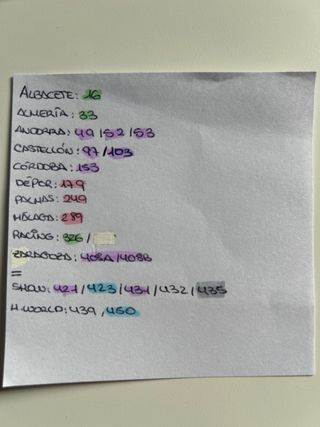 ALBACETE: 16
ALMERÍA: 33
ANDORRA: 49 / 52 / 53
CASTELLÓN: 97 / 103
CÓRDOBA: 153
DÉPOR: 179
PALMAS: 249
MÁLAGA: 289
RACING: 326 /
ZARAGOZA: 408A / 408B
=
SHOW: 421 / 423 / 431 / 432 / 435
H.WORLD: 439, 450